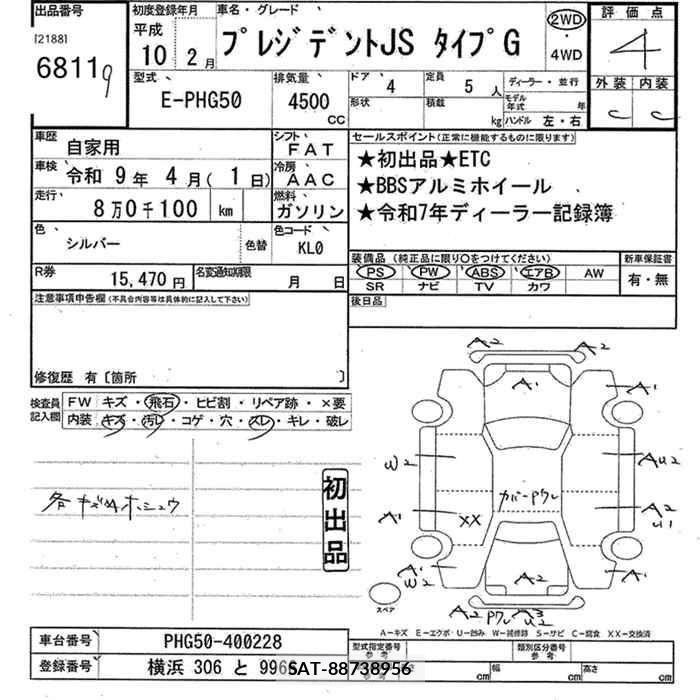 出品番号 初度登録年月 車名・グレード 評価点
[2188] 68119 平成 10 2月 プレジデントJS タイプG 2WD・4WD 4
型式 E-PHG50 排気量 4500 CC ドア 4 定員 5人 ディーラー・並行 外装 内装
形状 積載 kg モデル年式 年 ハンドル 左・右 C C
車歴 自家用 シフト FAT セールスポイント(正常に機能するものに限ります)
車検 令和 9年 4月(1日) 冷房 AAC ★初出品★ETC
走行 8万0千100 km 燃料 ガソリン ★BBSアルミホイール
★令和7年ディーラー記録簿
色 シルバー 色替 色コード KL0
装備品(純正品に限り○をつけてください) 新車保証書
R券 15,470円 名変通知期限 月 日 PS PW ABS エアB AW 有・無
SR ナビ TV カワ
注意事項申告欄(不具合内容等は具体的に記入して下さい) 後日品
修復歴 有〔箇所 〕
検査員記入欄 FW キズ・飛石・ヒビ割・リペア跡・×要
内装 キズ・汚レ・コゲ・穴・スレ・キレ・破レ
初出品
A2 A2
A1 A1
W2 AU2
カバーPワレ
A1 XX A2 U1
A1 W2 A2 A1
スペア A2 Pワレ
A―キズ E―エクボ・U―凹み W―補修跡 S―サビ C―腐食 XX―交換済
車台番号 PHG50-400228 型式指定番号 参考 類別区分番号 参考
登録番号 横浜 306 と SAT-88738956 cm 幅 cm 高さ cm